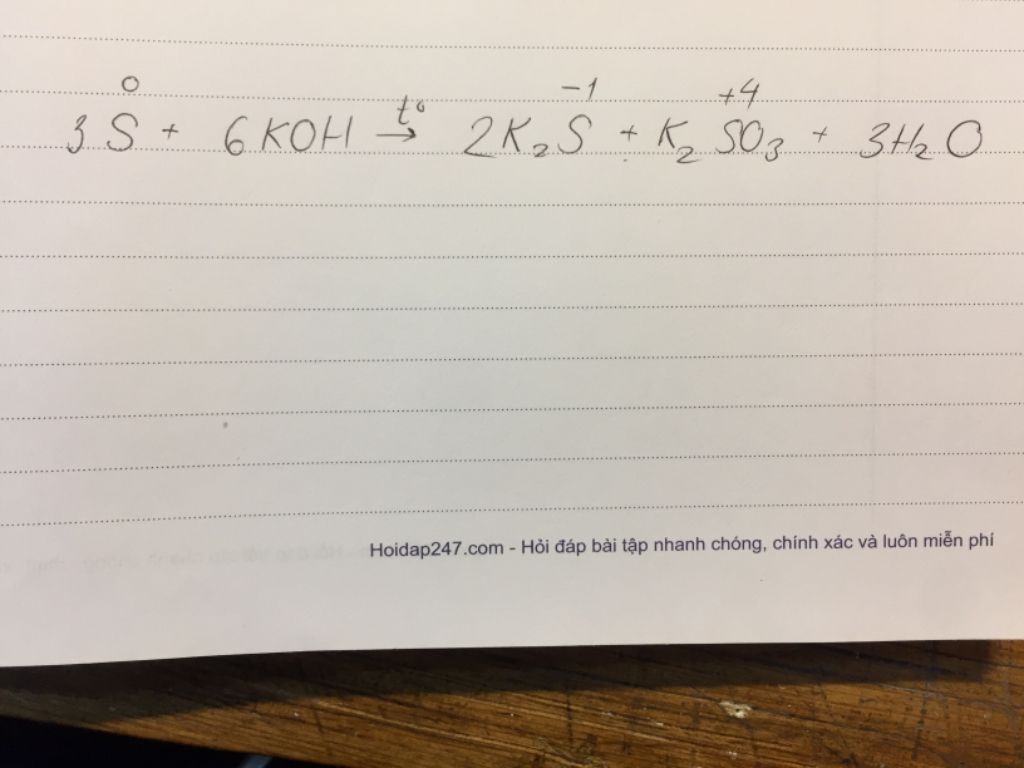 0 -1 +4
3S + 6KOH t° → 2K₂S + K₂SO₃ + 3H₂O
Hoidap247.com - Hỏi đáp bài tập nhanh chóng, chính xác và luôn miễn phí